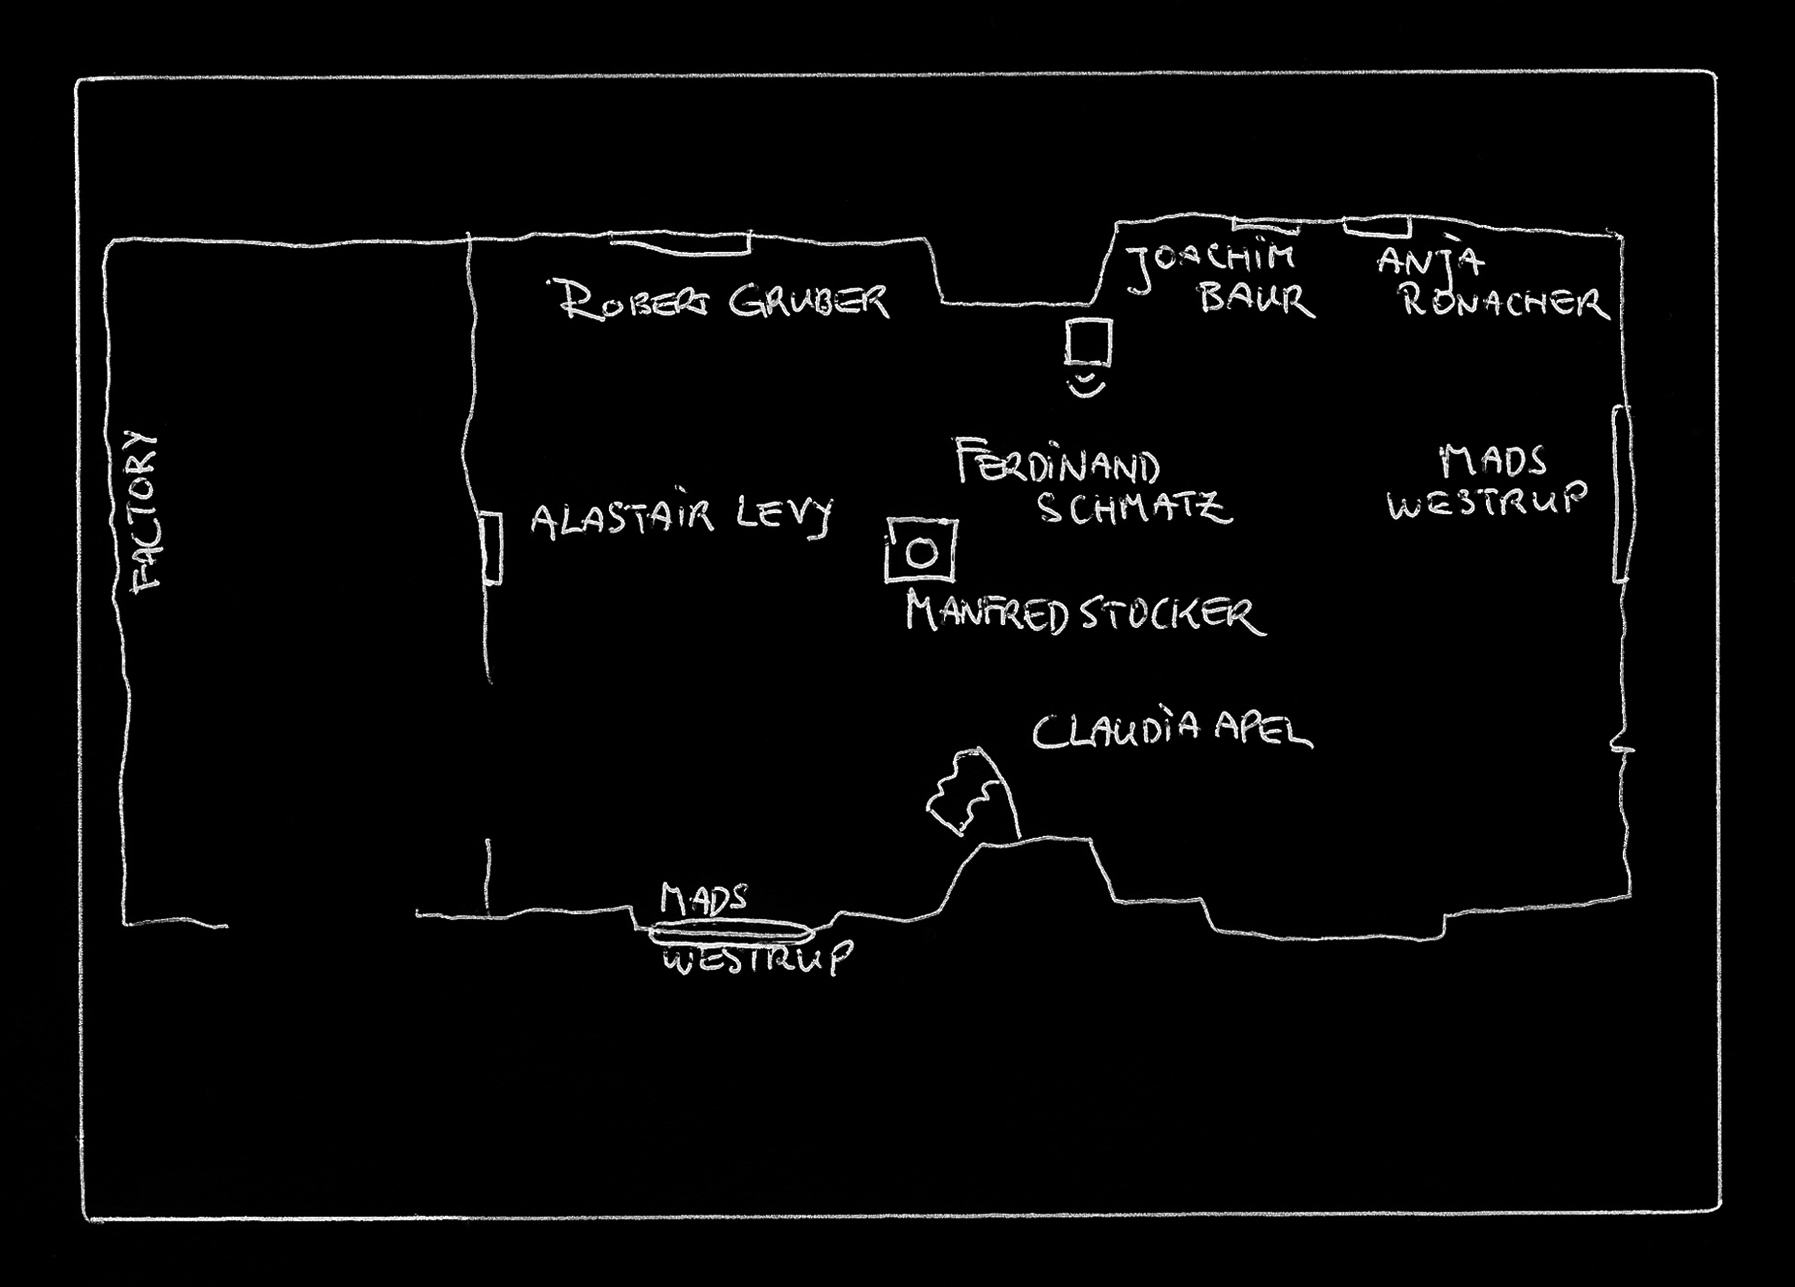 ROBERT GRUBER
JOACHIM
BAUR
ANJA
RONACHER
FACTORY
ALASTAIR LEVY
FERDINAND
SCHMATZ
MADS
WESTRUP
MANFRED STOCKER
CLAUDIA APEL
MADS
WESTRUP